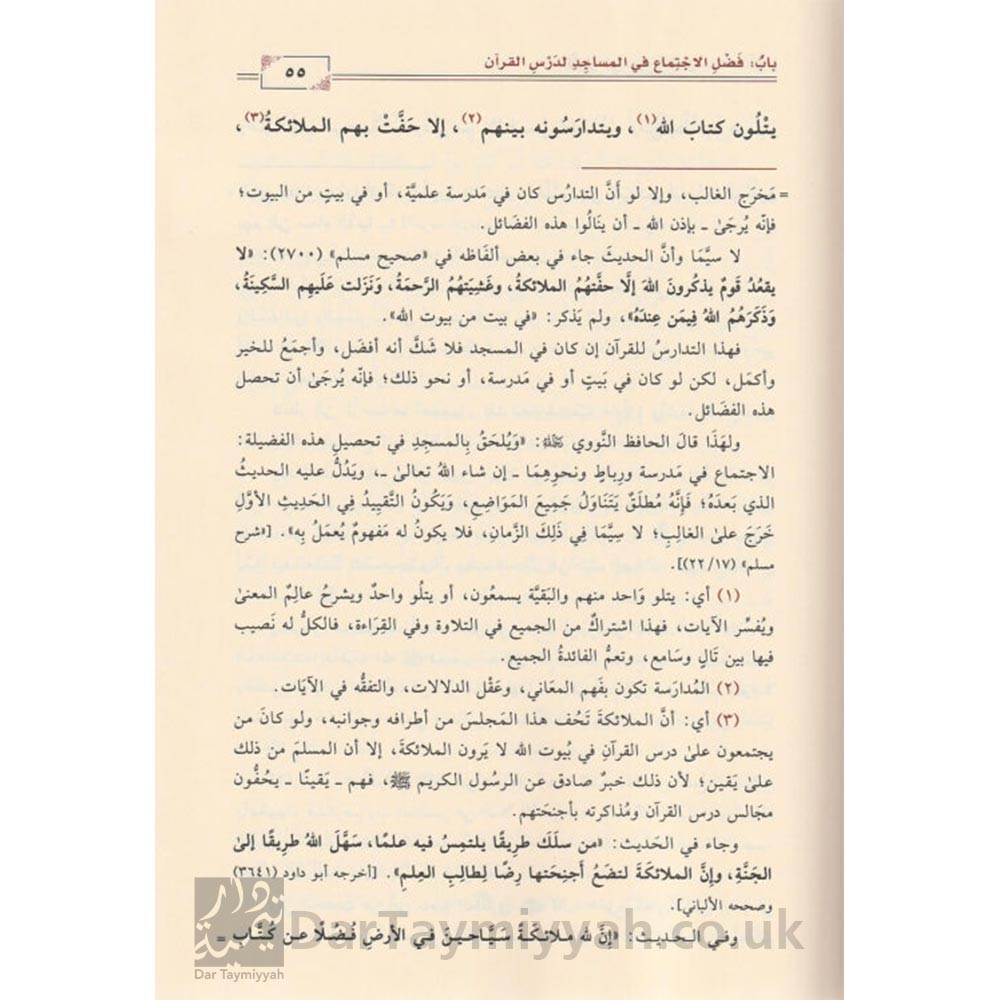 بابُ: فَضْلِ الاجْتِماع في المساجِدِ لدَرْسِ القرآن
٥٥
يتْلُون كتابَ الله(١)، ويتدارَسُونه بينهم(٢)، إلا حَفَّتْ بهم الملائكةُ(٣)،
= مَخرَج الغالب، وإلا لو أَنَّ التدارُس كان في مَدرسة علميَّة، أو في بيتٍ من البيوت؛
فإنّه يُرجَىٰ ـ بإذن الله ـ أن يَنَالُوا هذه الفضَائل.
لا سيَّمَا وأنَّ الحديثَ جاء في بعض ألفَاظه في «صحيح مسلم» (٢٧٠٠): «لا
يقعُدُ قَومٌ يذكُرونَ اللهَ إلَّا حفَّتهُمُ الملائكةُ، وغَشِيَتهُمُ الرَّحمَةُ، ونَزَلت عَلَيهِم السَّكِينَةُ،
وَذَكَرَهُمُ اللهُ فِيمَن عِندَهُ»، ولم يَذكر: «في بيت من بيوت الله».
فهذا التدارسُ للقرآن إن كان في المسجد فلا شَكَّ أنه أفضَل، وأجمَعُ للخير
وأكمَل، لكن لو كان في بَيتٍ أو في مَدرسة، أو نحو ذلك؛ فإنّه يُرجَىٰ أن تحصل
هذه الفضَائل.
ولهَذَا قالَ الحافظ النَّووي ﵀: «وَيُلحَقُ بِالمسجِدِ في تحصيلِ هذه الفضيلة:
الاجتماع في مَدرسة ورِباطٍ ونحوِهِمَا ـ إن شاء اللهُ تعالىٰ ـ، ويَدُلُّ عليه الحديثُ
الذي بَعدَهُ؛ فَإنَّهُ مُطلَقٌ يَتَنَاوَلُ جَمِيعَ المَوَاضِعِ، وَيَكُونُ التَّقيِيدُ فِي الحَدِيثِ الأوَّلِ
خَرَجَ علىٰ الغالِبِ؛ لا سِيَّمَا فِي ذَلِكَ الزَّمانِ، فلا يكونُ له مَفهومٌ يُعمَلُ بِه». [«شرح
مسلم» (٢٢/١٧)].
(١) أي: يتلو وَاحد منهم والبَقيَّة يسمعُون، أو يتلُو واحدٌ ويشرحُ عالِمٌ المعنىٰ
ويُفسِّر الآيات، فهذا اشتراكٌ من الجميع في التلاوة وفي القِرَاءة، فالكلُّ له نَصيب
فيها بين تَالٍ وسَامع، وتعمُّ الفائدةُ الجميع.
(٢) المُدارَسة تكون بفَهم المعَاني، وعَقْل الدلالات، والتفقُّه في الآيَات.
(٣) أي: أنَّ الملائكةَ تَحُف هذا المَجلسَ من أطرافه وجوانبه، ولو كانَ من
يجتمعون علىٰ درس القرآنِ في بُيوت الله لا يَرون الملائكةَ، إلا أن المسلمَ من ذلك
علىٰ يَقين؛ لأن ذلك خبرٌ صادق عن الرسُول الكريم ﷺ، فهم ـ يَقينًا ـ يحُفُّون
مجَالس درس القرآن ومُذاكرته بأجنحَتهم.
وجاء في الحَديث: «من سلَكَ طريقًا يلتمِسُ فيه علمًا، سَهَّلَ اللهُ طريقًا إلىٰ
الجَنَّةِ، وإنَّ الملائكَةَ لتضَعُ أجنِحَتها رِضًا لِطالِبِ العِلمِ». [أخرجه أبو داود (٣٦٤١)
وصححه الألباني].
وفي الحديث: «إنَّ لله ملائكَةً سَيَّاحينَ في الأرضِ فُضُلًا عن كُتَّاب ـ
دار تيمية
Dar Taymiyyah
DarTaymiyyah.co.uk